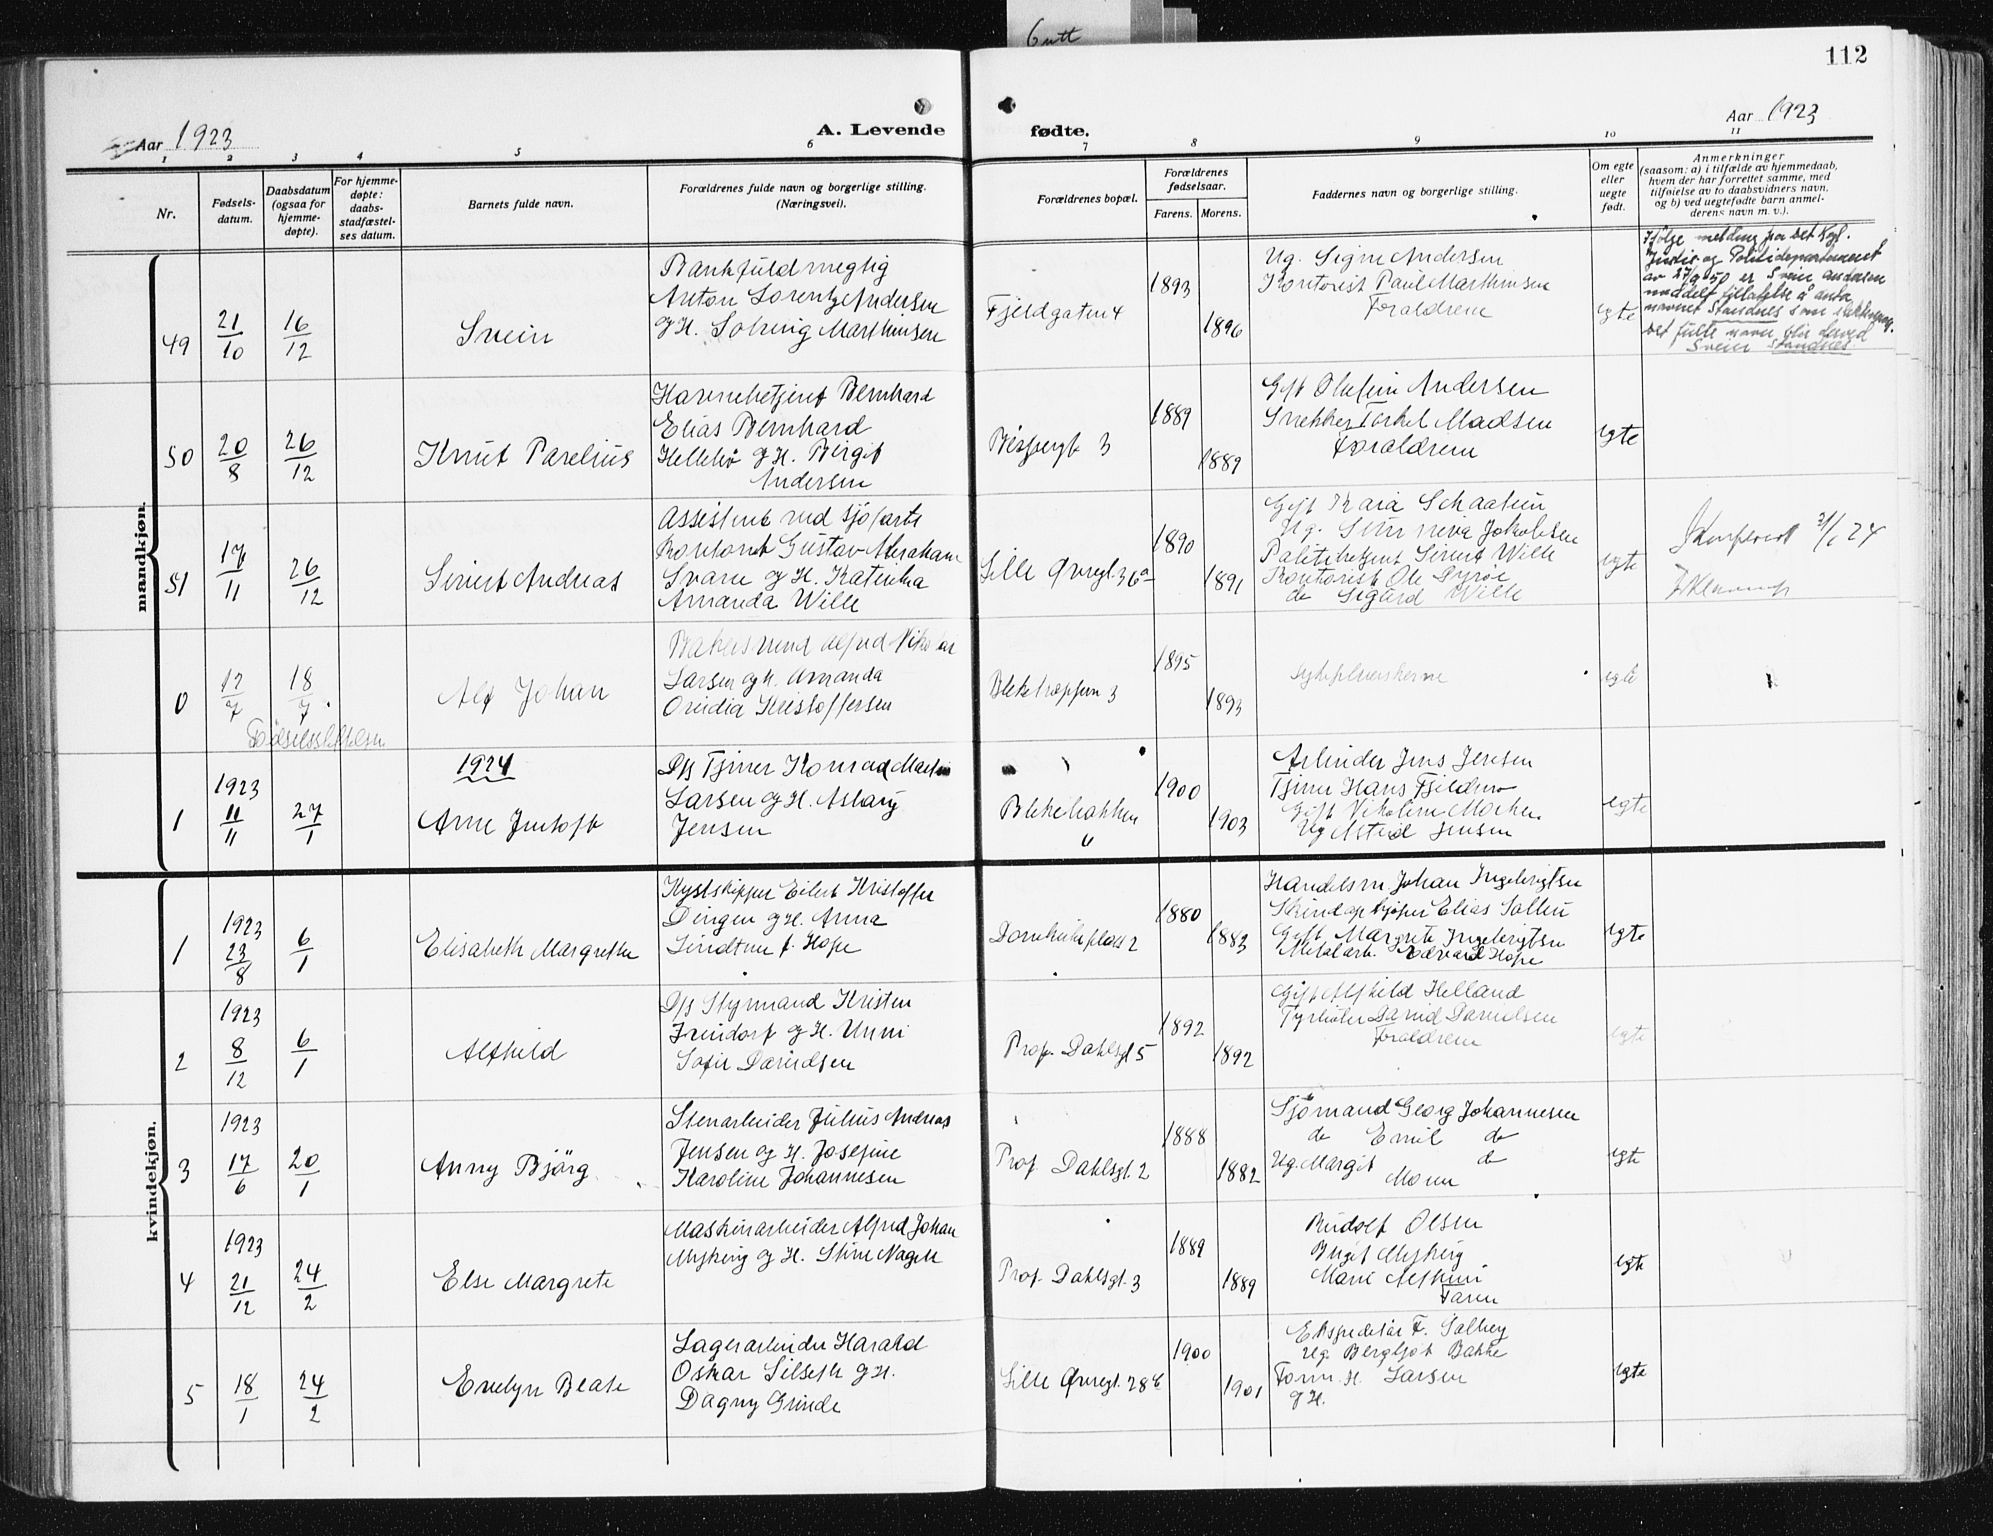 6 utt
112
Aar 1923
A. Levende fødte.
Aar 1923
1 2 3 4 5 6 7 8 9 10 11
Nr.
Fødsels-
datum.
Daabsdatum
(ogsaa for
hjemme-
døpte).
For hjemme-
døpte:
daabs-
stadfæstel-
ses datum.
Barnets fulde navn.
Forældrenes fulde navn og borgerlige stilling.
(Næringsvei).
Forældrenes bopæl.
Forældrenes
fødselsaar.
Farens. Morens.
Faddernes navn og borgerlige stilling.
Om egte
eller
uegte
født.
Anmerkninger
(saasom: a) i tilfælde av hjemmedaab,
hvem der har forrettet samme, med
tilføielse av to daabsvidners navn,
og b) ved uegtefødte barn anmel-
derens navn m. v.).
mandkjøn.
49
21/10
16/12
Svein
Bankfuldmegtig
Anton Lorentz Andersen
og H. Solveig Marthinsen
Fjeldgaten 4
1893
1896
Ug. Signe Andersen
Kontorist Paul Marthinsen
Forældrene
egte
Ifølge melding fra Det Kgl.
Justis og Politidepartement
av 27/9 50 er Svein Andersen
meddelt tillatelse å anta
navnet Standnes som slektsnavn.
Det fulle navn blir derved
Svein Standnes
50
20/8
26/12
Knut Parelius
Havnebetjent Bernhard
Elias Bernhard
Hellebø og H. Birgit
Andersen
Bispengt 3
1889
1889
Gift Olufine Andersen
Snekker Torkel Madsen
Forældrene
egte
51
17/11
26/12
Sivert Andreas
Assistent ved sjøfarts
kontoret Gustav Abraham
Svane og H. Katinka
Amanda Wille
Lille Øvregt. 36a
1890
1891
Gift Kaia Schaatun
Ug. Sunniva Jakobsen
Politibetjent Sivert Wille
Kontorist Ole Byrøe
do Sigurd Wille
egte
Konferert 31/1 24
0
17/7
18/7
Fødselsstiftelsen
Alf Johan
Bakersvend Alfred Nikolai
Larsen og H. Amanda
Ovidia Kristoffersen
Bleketrappen 3
1895
1893
sykepleierskerne
egte
1924
1
1923
11/11
27/1
Arne Justoft
D/s Tjener Konrad Martin
Larsen og H. Aslaug
Jensen
Blekebakken
"
1900
1903
Arbeider Jens Jensen
Tjener Hans Fjeldmo
Gift Nikoline Morken
Ug Astrid Jensen
egte
kvindekjøn.
1
1923
23/8
6/1
Elisabeth Margrethe
Kystskipper Eilert Kristoffer
Dingen og H. Anna
Lindtner f. Hope
Domkirkeplass 2
1880
1883
Handelsm. Johan Ingebrigtsen
Skindopkjøper Elias Solheim
Gift Margrete Ingebrigtsen
Metalarb. Edvard Hope
egte
2
1923
8/12
6/1
Alfhild
D/s Styrmand Kristen
Irendorf og H. Unni
Sofie Davidsen
Prof. Dahlsgt 5
1892
1892
Gift Alfhild Helland
Fyrbøter David Danielsen
Forældrene
egte
3
1923
17/6
20/1
Anny Bjørg
Stenarbeider Julius Andreas
Jensen og H. Josefine
Karoline Johannesen
Prof Dahlsgt. 2
1888
1882
Sjømand Georg Johannesen
do Emil do
Ug. Margit do
Moren
egte
4
1923
21/12
24/2
Else Margrete
Maskinarbeider Alfred Johan
Myking og H. Stine Nagell
Prof. Dahlsgt. 3
1889
1889
Rudolf Olsen
Birgit Myking
Marie
Faren
egte
5
18/1
24/2
Evelyn Beate
Lagerarbeider Harald
Oskar Silseth og H.
Dagny Grinde
Lille Øvregt. 28b
1900
1901
Ekspeditør F. Solberg
Ug. Bergljot Bakke
Form. H. Larsen
og H.
egte